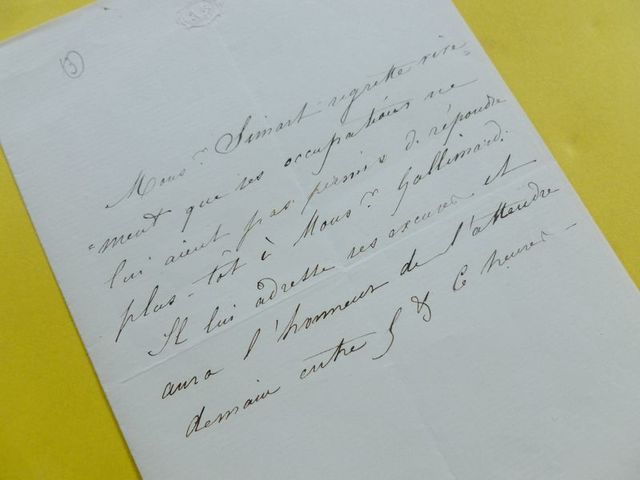 Mons.r Simart regrette vive=
=ment que ses occupations ne
lui aient pas permis de répondre
plus-tôt à Mons.r Gallimard.
Il lui adresse ses excuses et
aura l'honneur de l'attendre
demain entre 5 & 6 heures –